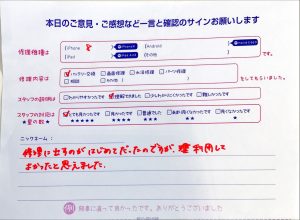 本日のご意見・ご感想など一言と確認のサインお願いします
修理機種は
iPhone 8
Android
iPad
その他
修理内容は
バッテリー交換
画面修理
水没修理
パーツ修理
その他
をしてもらいました。
スタッフの説明は
わかりやすかったです
理解できました
少しわかりにくかったです
難しかったです
スタッフの対応は
★星の数★
とても良かったです
良かったです
普通でした
★★★★★
★★★★
★★★
★★
★
ニックネーム：
修理に出すのがはじめてだったのですが、
よかったと思えました。
無事に直って良かったです。ありがとうございました